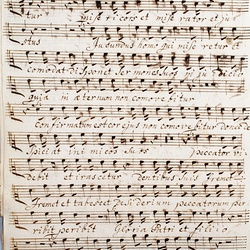 tur miserícors et miserator et jus
stus Jucundus homo qui miseretur et
Comodat disponet sermones suos in judicio
quia in æternum non comovebitur
Confirmatum est cor ejus non comovebitur donec d
spiciat inimicos suos peccator vi
debit et irascetur dentibus suis fremet
Fremet et tabescet desiderium peccatorum per
ribit peribit Gloria Patri et filio